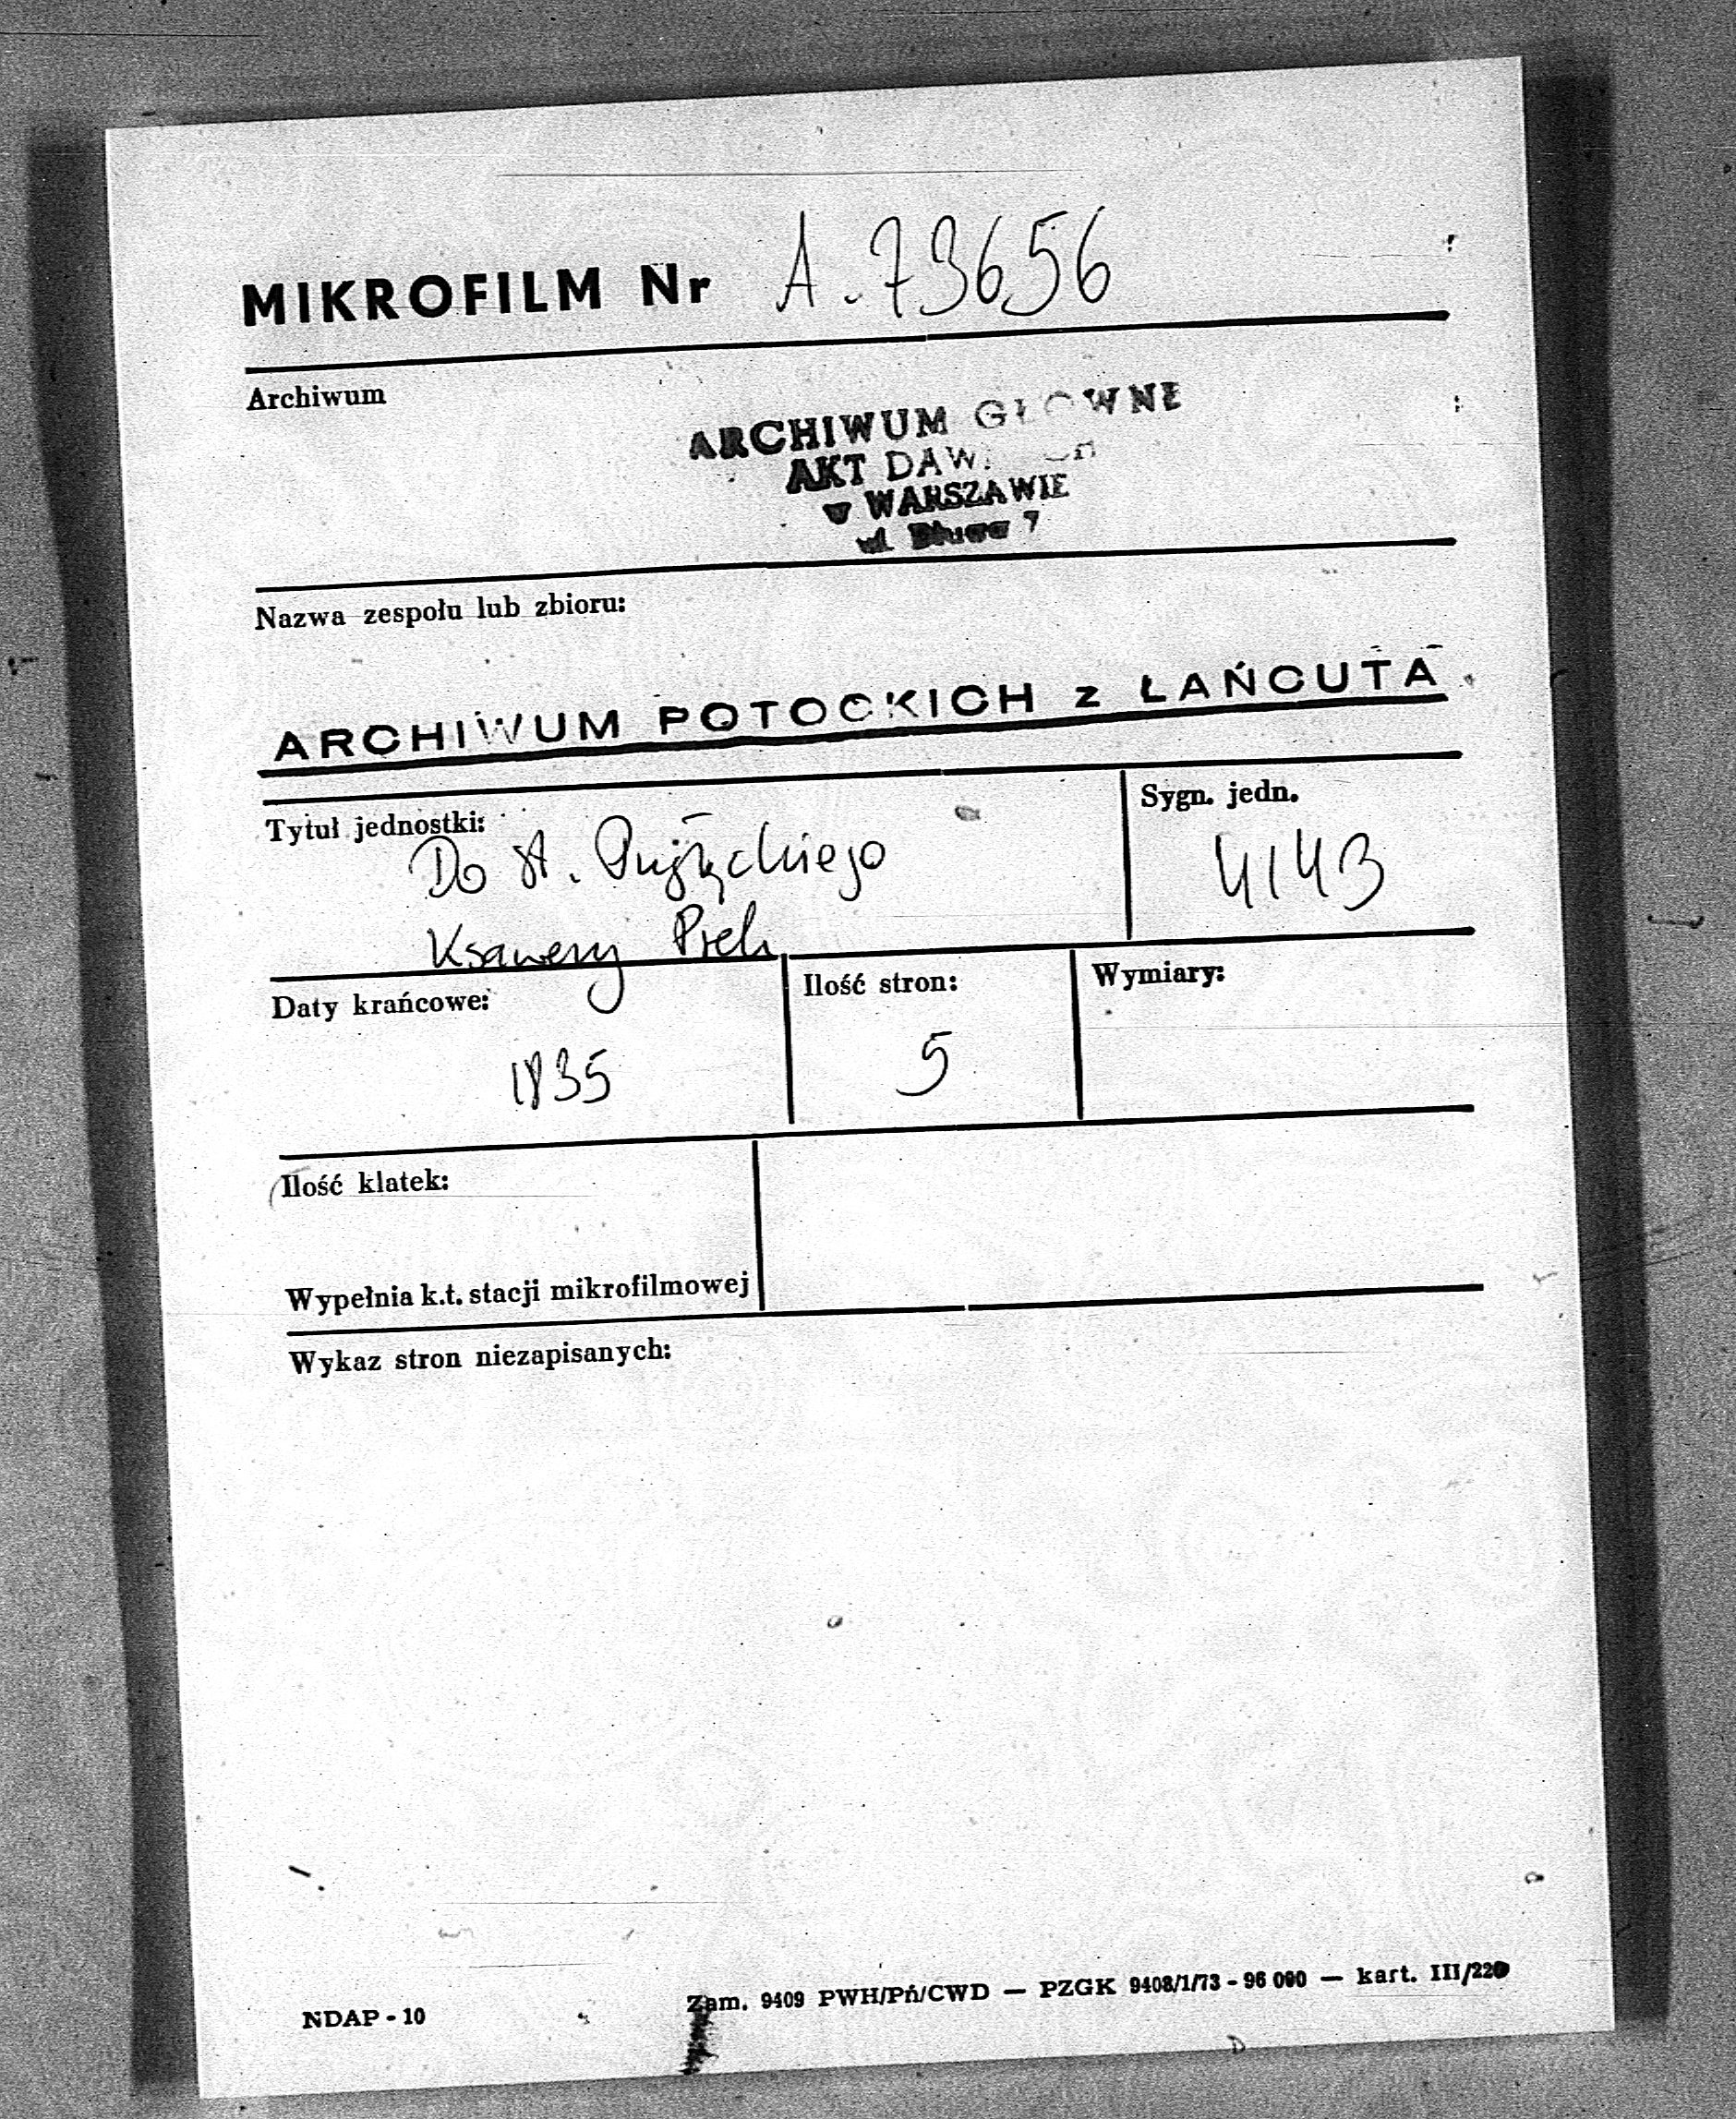 MIKROFILM Nr A. 73656
Archiwum
ARCHIWUM GŁOWNE
AKT DAW
w WARSZAWIE
ul. Długa 7
Nazwa zespołu lub zbioru:
ARCHIWUM POTOCKICH z ŁAŃCUTA
Tytuł jednostki:
Sygn. jedn.
Do A.
4143
Ksawery Prek
Daty krańcowe:
Ilość stron:
Wymiary:
1835
5
Ilość klatek:
Wypełnia k.t. stacji mikrofilmowej
Wykaz stron niezapisanych:
NDAP - 10
Zam. 9409 PWH/Pń/CWD — PZGK 9408/1/73 - 96 000 — kart. III/220